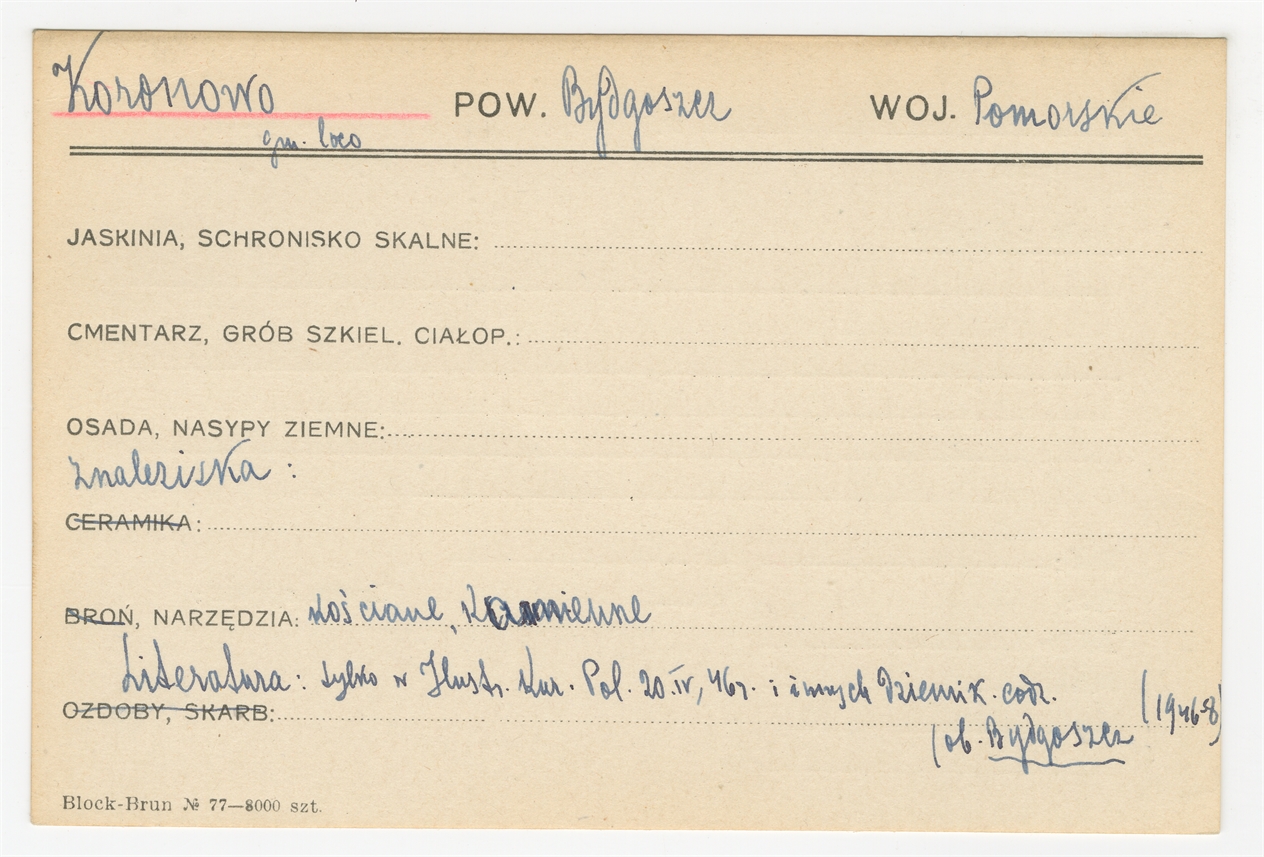 Koronowo POW. Bydgoszcz WOJ. Pomorskie
gm. loco
JASKINIA, SCHRONISKO SKALNE:
CMENTARZ, GRÓB SZKIEL. CIAŁOP.:
OSADA, NASYPY ZIEMNE:
Znaleziska :
CERAMIKA:
BROŃ, NARZĘDZIA: kościane, kamienne
Literatura: tylko w Ilustr. Kur. Pol. 20.IV, 46r. i innych dziennik. codz.
OZDOBY, SKARB: (1946-8)
(ob. Bydgoszcz
Block-Brun № 77—8000 szt.